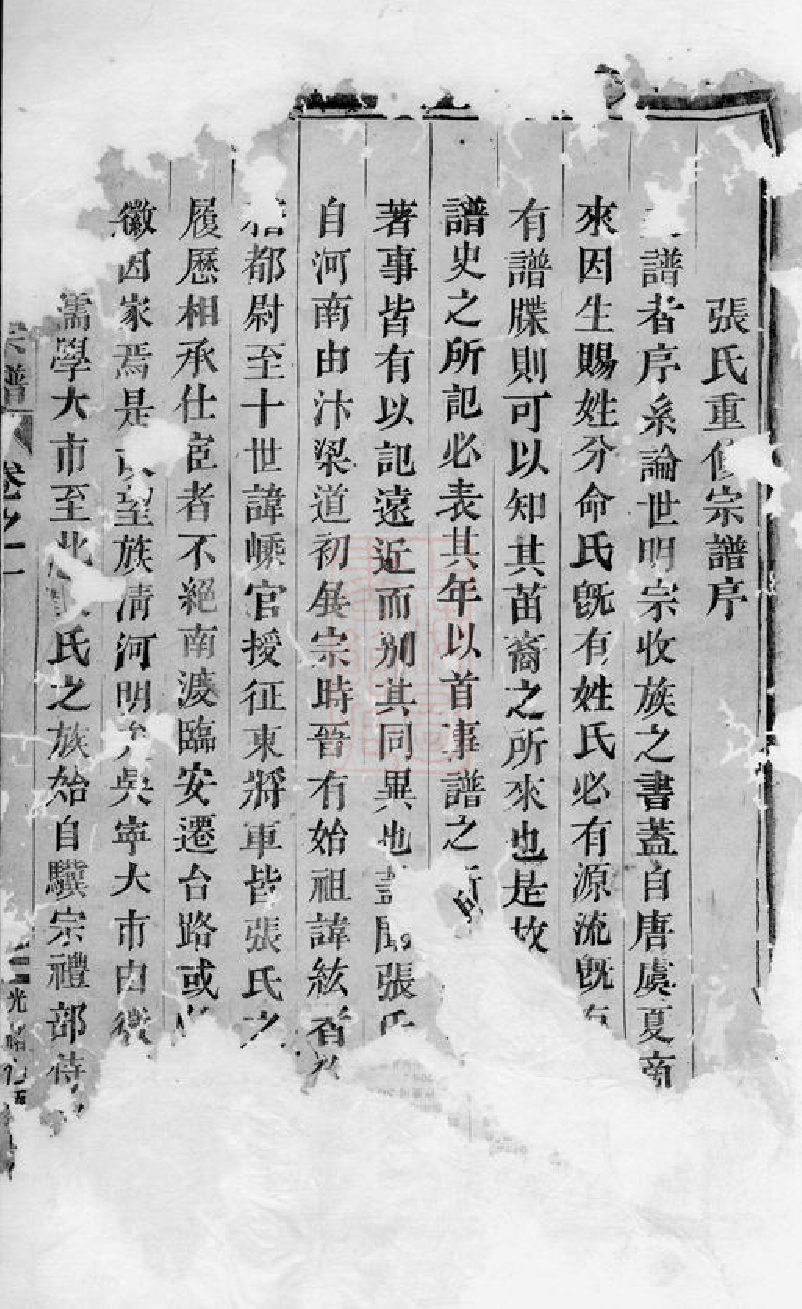 張氏重修宗譜序
譜者序系論世明宗收族之書蓋自唐虞夏商
來因生賜姓分命氏旣有姓氏必有源流旣有
有譜牒則可以知其苗裔之所來也是故
譜史之所記必表其年以首事譜之所
著事皆有以記遠近而別其同異也蓋聞張氏
自河南由汴梁道初矣宗時晉有始祖諱絃者
都尉至十世諱嵊官授征東將軍皆張氏之
履歷相承仕宦者不絕南渡臨安遷台路或
徽因家焉是 望族淸河明 吳寧大市由徵
儒學大市至北 氏之族始自驥宗禮部侍
宗譜 卷之一 光緒